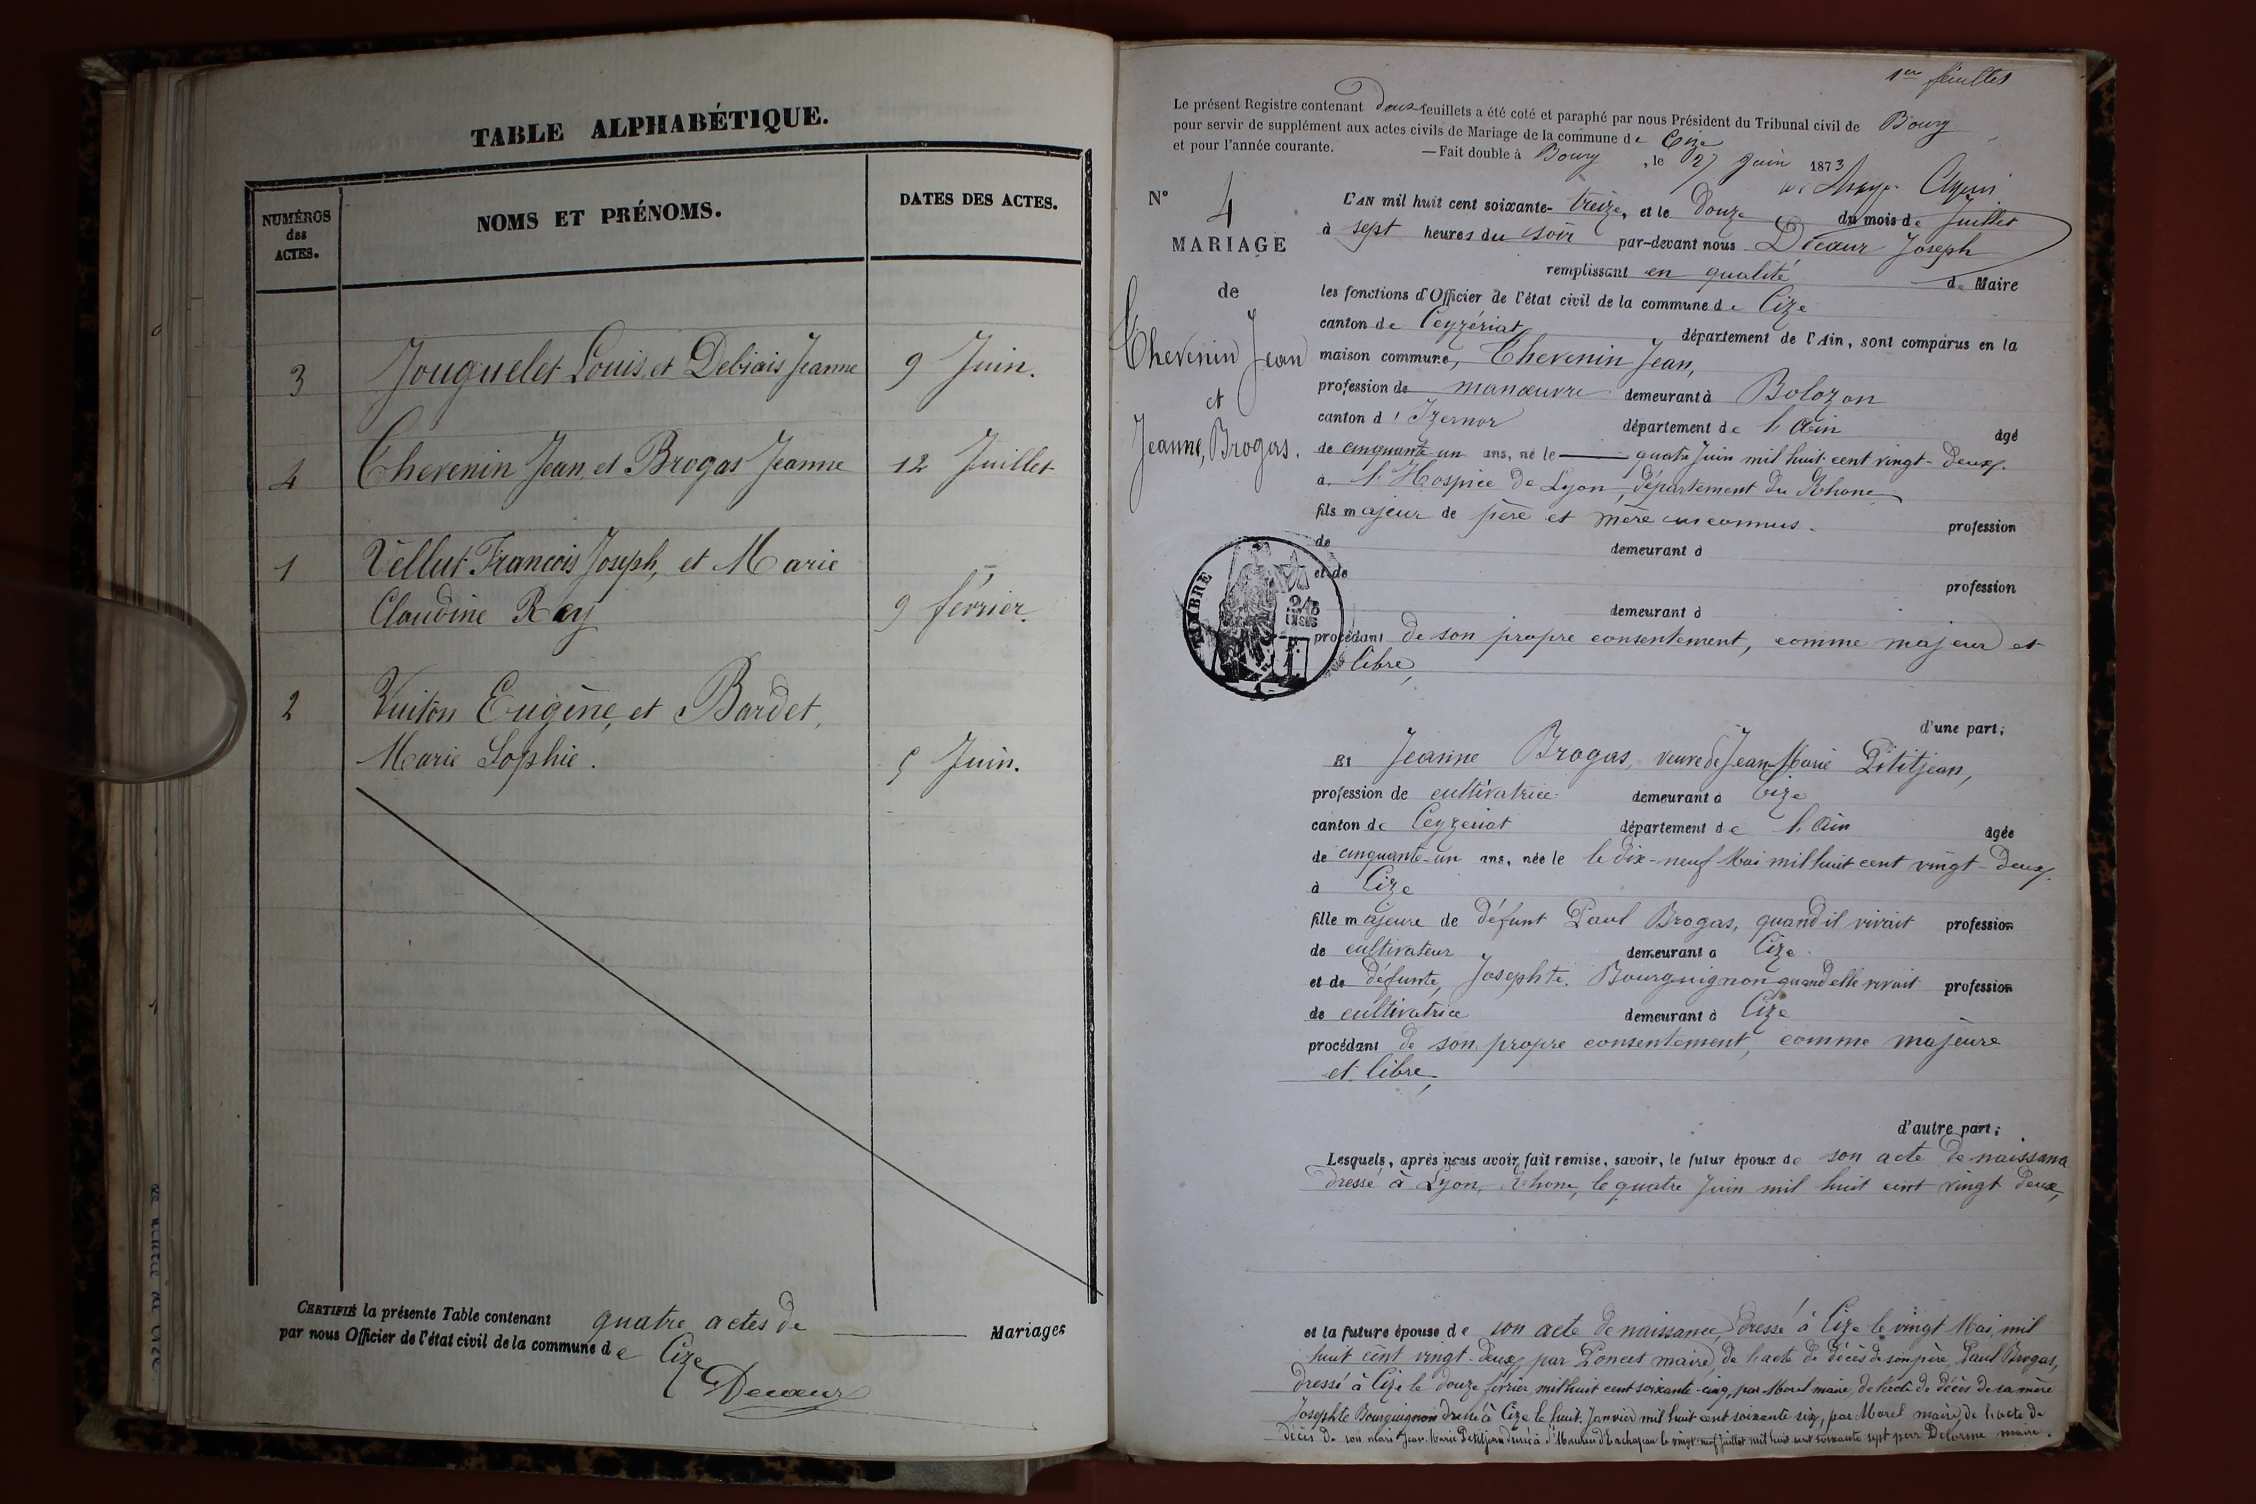 TABLE ALPHABÉTIQUE.
NUMÉROS des ACTES.
NOMS ET PRÉNOMS.
DATES DES ACTES.
3 Jouguelet Louis, et Debiais Jeanne 9 Juin.
4 Thevenin Jean, et Brogas Jeanne 12 Juillet
1 Vellut François Joseph, et Marie
Claudine Rey 9 février.
2 Vuiton Eugène, et Bardet,
Marie Sophie. 5 Juin.
CERTIFIÉ la présente Table contenant quatre actes de Mariages
par nous Officier de l'état civil de la commune de Cize
Decoeur
1er feuillet
Le présent Registre contenant deux feuillets a été coté et paraphé par nous Président du Tribunal civil de Bourg
pour servir de supplément aux actes civils de Mariage de la commune de Cize
et pour l'année courante. — Fait double à Bourg, le 27 Juin 1873
N° 4
MARIAGE
de
Thevenin Jean
et
Jeanne, Brogas.
TIMBRE
L'AN mil huit cent soixante-treize, et le douze du mois de Juillet
à sept heures du soir par-devant nous Décoeur Joseph
remplissant en qualité de Maire
les fonctions d'Officier de l'état civil de la commune de Cize
canton de Ceyzériat département de l'Ain, sont comparus en la
maison commune, Thevenin Jean,
profession de manœuvre demeurant à Bolozon
canton d'Izernor département de l'Ain âgé
de cinquante un ans, né le quatre Juin mil huit cent vingt-deux.
à l'Hospice de Lyon, département du Rhone
fils majeur de père et mère inconnus. profession
de demeurant à
et de profession
demeurant à
procédant de son propre consentement, comme majeur et
libre,
d'une part;
Et Jeanne Brogas, veuve de Jean-Marie Pititjean,
profession de cultivatrice demeurant à Cize
canton de Ceyzeriat département de l'Ain âgée
de cinquante-un ans, née le le dix-neuf Mai mil huit cent vingt-deux.
à Cize
fille majeure de défunt Paul Brogas, quand il vivait profession
de cultivateur demeurant à Cize.
et de défunte, Josephte Bourguignon quand elle vivait profession
de cultivatrice demeurant à Cize
procédant de son propre consentement, comme majeure
et libre,
d'autre part;
Lesquels, après nous avoir fait remise, savoir, le futur époux de son acte de naissance
dressé à Lyon, Rhone, le quatre Juin mil huit cent vingt deux,
et la future épouse de son acte de naissance, dressé à Cize le vingt Mai, mil
huit cent vingt-deux, par Poncet maire, de l'acte de décès de son père, Paul Brogas,
dressé à Cize le douze février mil huit cent soixante-cinq, par Morel maire, de l'acte de décès de sa mère
Josephte Bourguignon dressé à Cize le huit Janvier mil huit cent soixante six, par Morel maire, de l'acte de
décès de son mari Jean-Marie Petitjean dressé à St Maurice d'Echazeau le vingt-neuf Juillet mil huit cent soixante sept par Delorme maire.